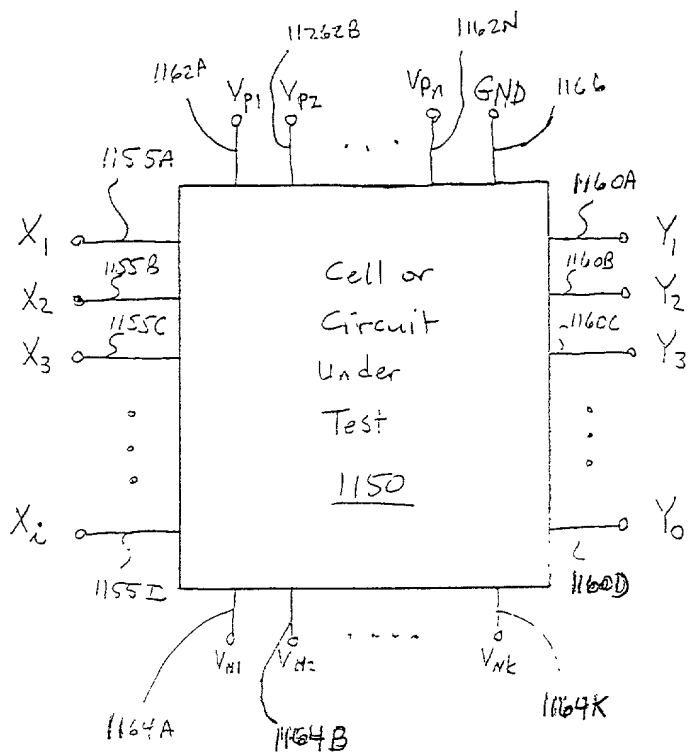 1162A
11262B
1162N
1166
V_P1
V_P2
V_Pn
GND
1155A
1160A
X_1
Y_1
1155B
1160B
X_2
Y_2
1155C
1160C
X_3
Y_3
Cell or
Circuit
Under
Test
1150
X_i
Y_o
1155I
1160D
V_N1
V_N2
V_NK
1164A
1164B
1164K